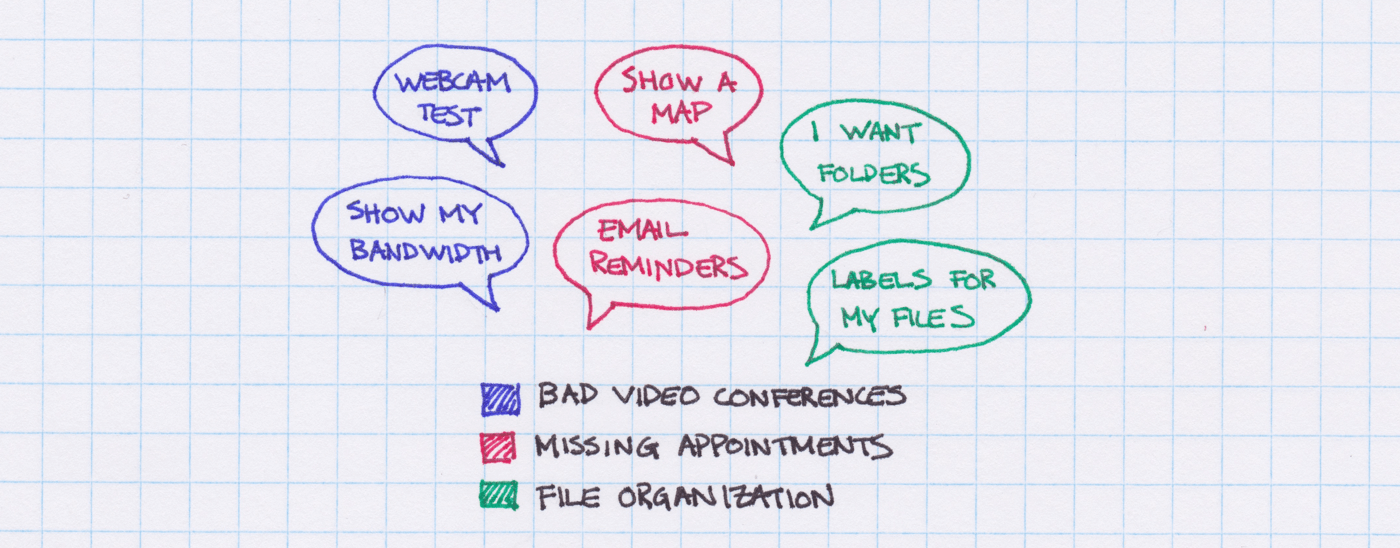 WEBCAM
TEST
SHOW A
MAP
I WANT
FOLDERS
SHOW MY
BANDWIDTH
EMAIL
REMINDERS
LABELS FOR
MY FILES
BAD VIDEO CONFERENCES
MISSING APPOINTMENTS
FILE ORGANIZATION